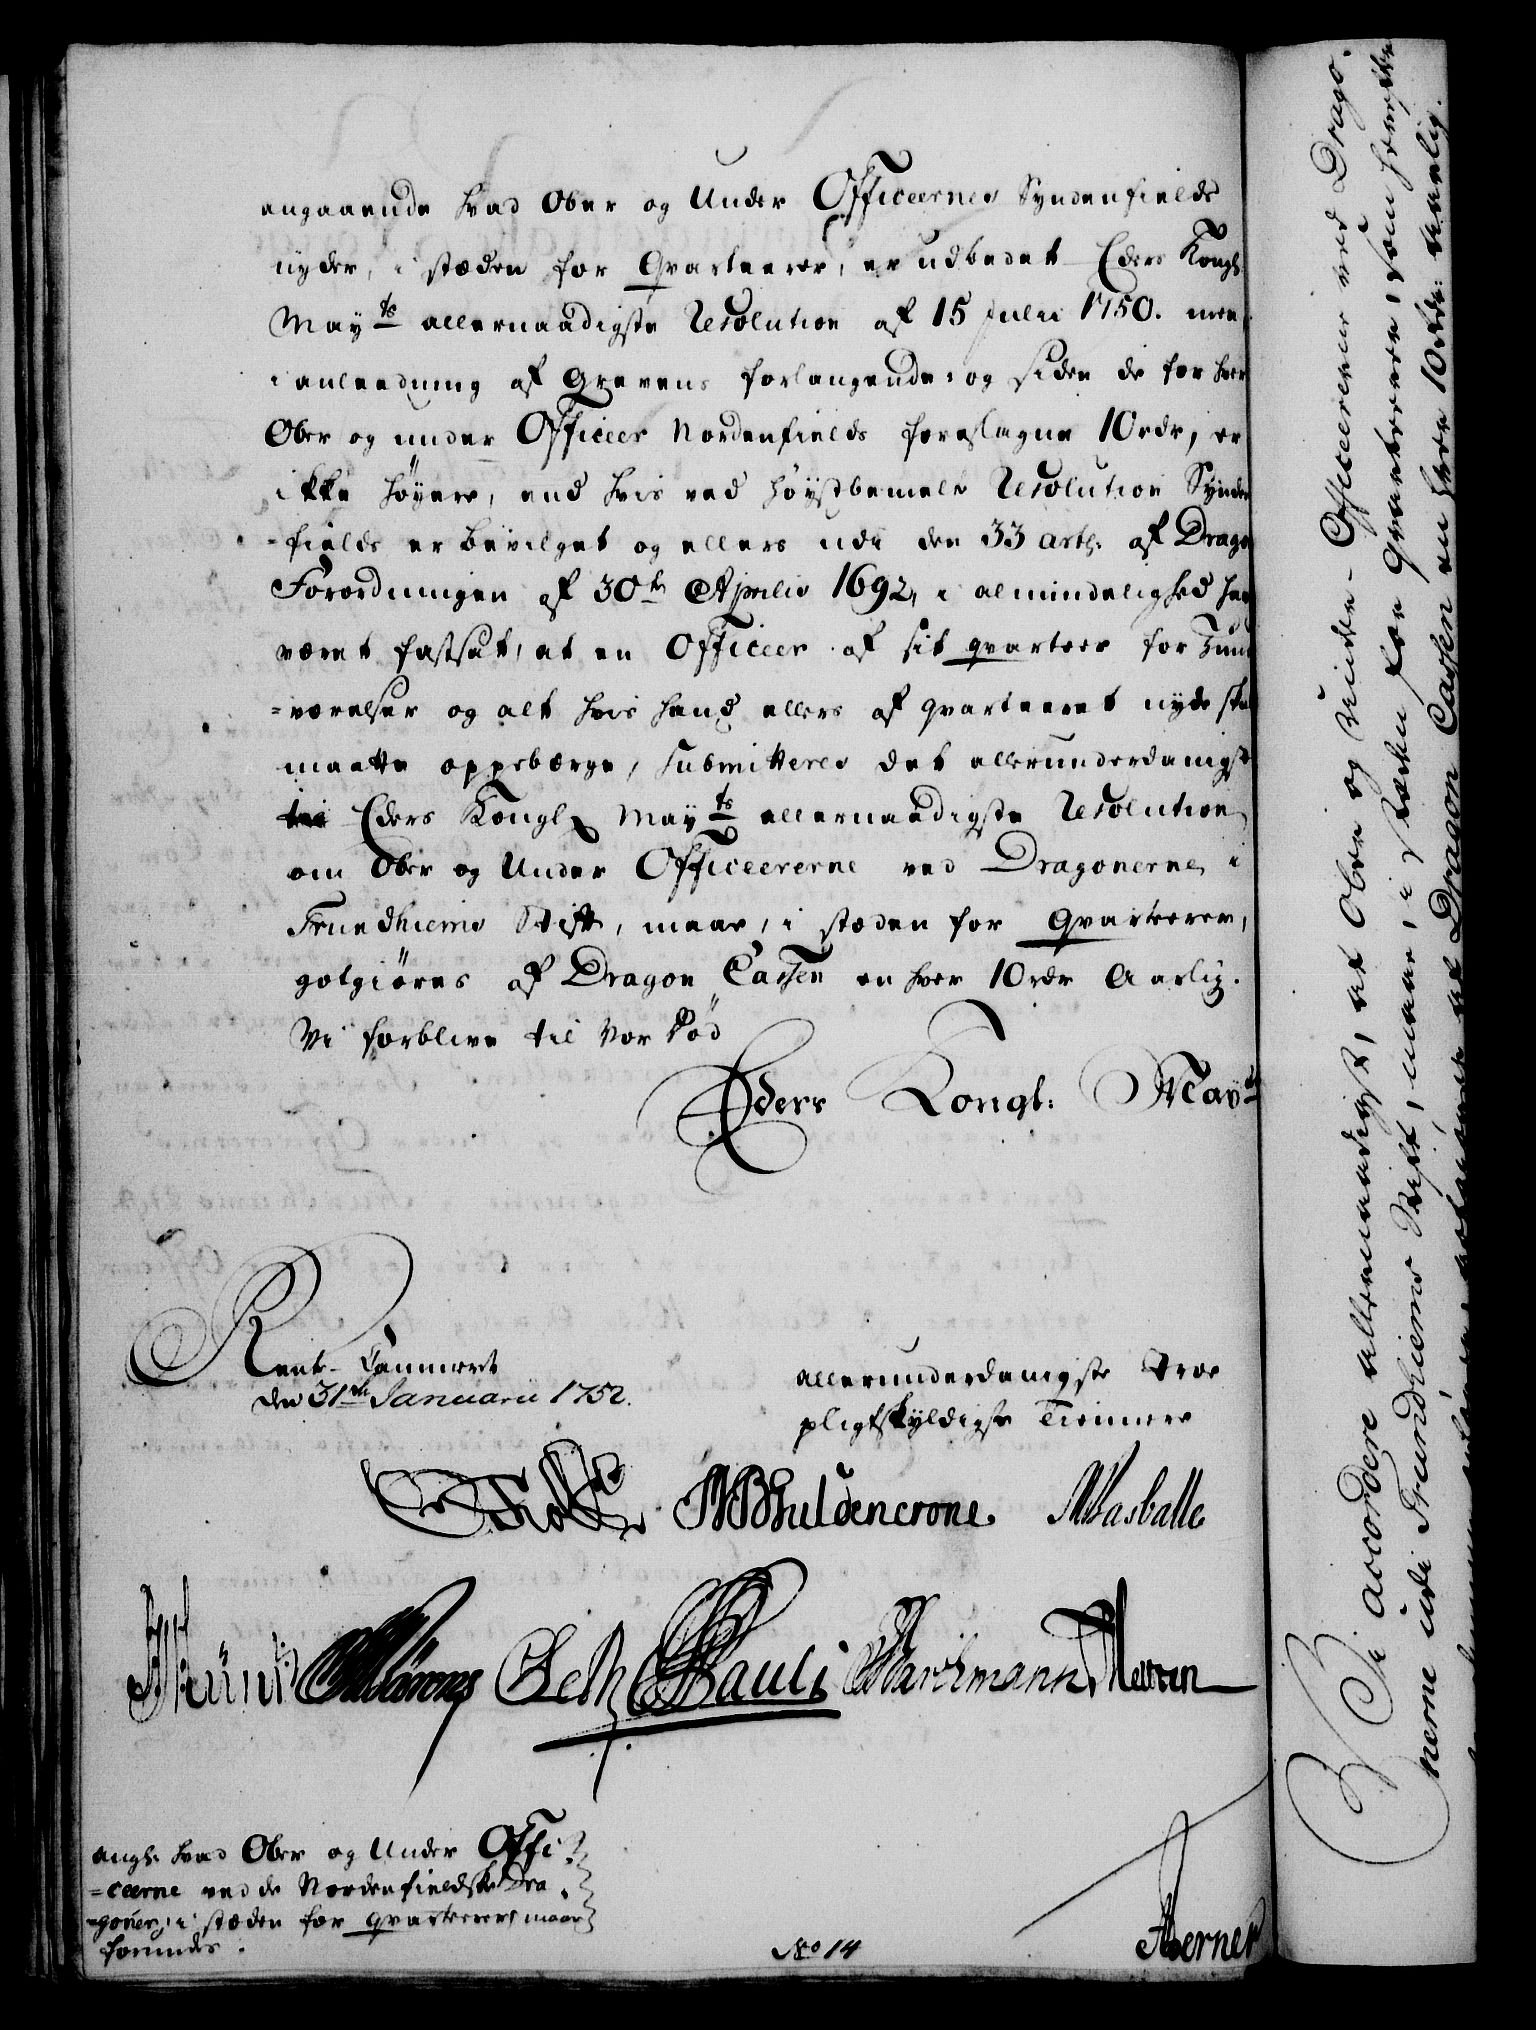 angaaende hvad Ober og Under Officeernes Syndenfields
nyder, i stæden for Qvarteerer, er udbedet Eders Kongl:
May ts allernaadigste Resolution af 15 Julii 1750. men
i anleedning af Grevens forlangende, og siden de for hver
Ober og under Officeer Nordenfields foreslagne 10 rdr, er
ikke höyere, end hvis ved höystbemelte Resolution Synden
=fields er bevilget og ellers udi den 33 art: af Drago
Forordningen af 30te Aprilis 1692, i almindelighed har
været fastsat, at en Officeer af sit qvarteer for Tien
=værelser og alt hvis hand ellers af qvarteeret nyde skal
maatte oppebærge, submitteres det allerunderdanigst
til Eders Kongl May ts allernaadigste Resolution
om Ober og Under Officeererne ved Dragonerne i
Trundhiems Stift, maae, i stæden for Qvarteerer,
gotgiöres af Dragon Cassen en hver 10 rdr Aarlig.
Vi forblive til Vor död
Eders Kongl: May ts
Rente-Cammeret
den 31te Januarii 1752.
allerunderdanigste troe
pligtskyldigste Tienere
Guldencrone. Masballe
Pauli
angl: hvad Ober og Under Offi
=ceerne ved de Nordenfieldske Dra
=goner, i stæden for qvarteerer maae
forundes.
No 14
Werner
Vi accordere allernaadigst, at Ober og Under-Officererne ved Drago-
nerne udi Trundhiems Stift, maae, i stæden for qvarterer, som herefter
Dragon Cassen en hver 10 rdr: aarlig.